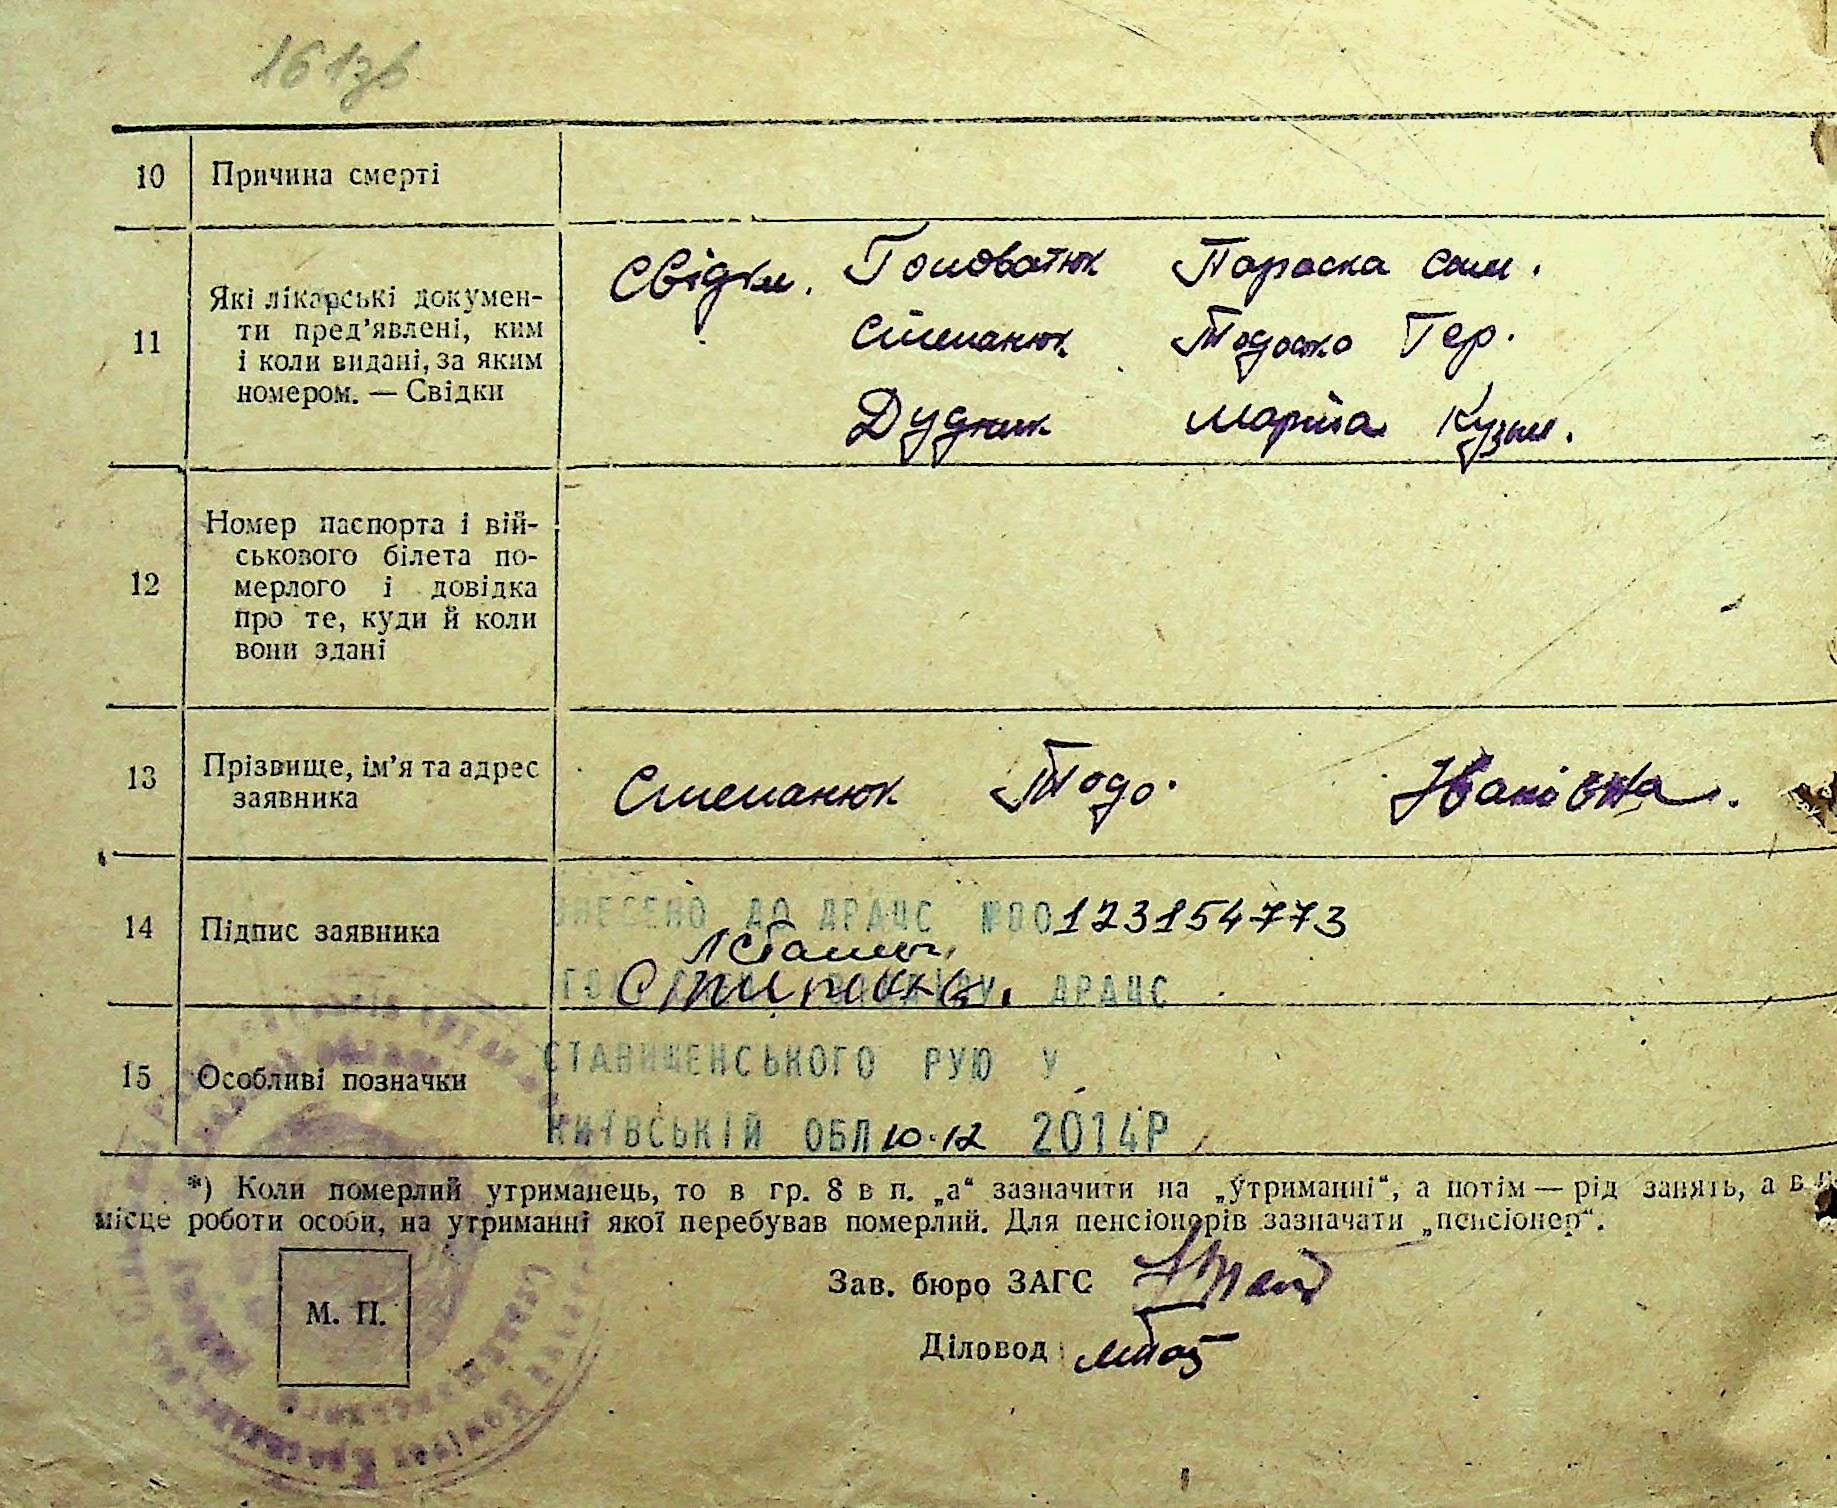 161зв
10 Причина смерті
11 Які лікарські докумен-
ти пред’явлені, ким
і коли видані, за яким
номером. — Свідки
Свідки. Головатюк Параска Сам.
Степанюк Тодоска Гер.
Дудник Марійа Кузьм.
12 Номер паспорта і вій-
ськового білета по-
мерлого і довідка
про те, куди й коли
вони здані
13 Прізвище, ім’я та адрес
заявника
Степанюк Тодо. Іванівна.
14 Підпис заявника
ВНЕСЕНО ДО ДРАЦС №00123154773
ДРАЦС
15 Особливі позначки
СТАВИЩЕНСЬКОГО РУЮ У
КИЇВСЬКІЙ ОБЛ 10.12 2014Р
*) Коли померлий утриманець, то в гр. 8 в п. „а“ зазначити на „утриманні“, а потім — рід занять, а в п.
місце роботи особи, на утриманні якої перебував померлий. Для пенсіонерів зазначати „пенсіонер“.
Зав. бюро ЗАГС
М. П.
Діловод